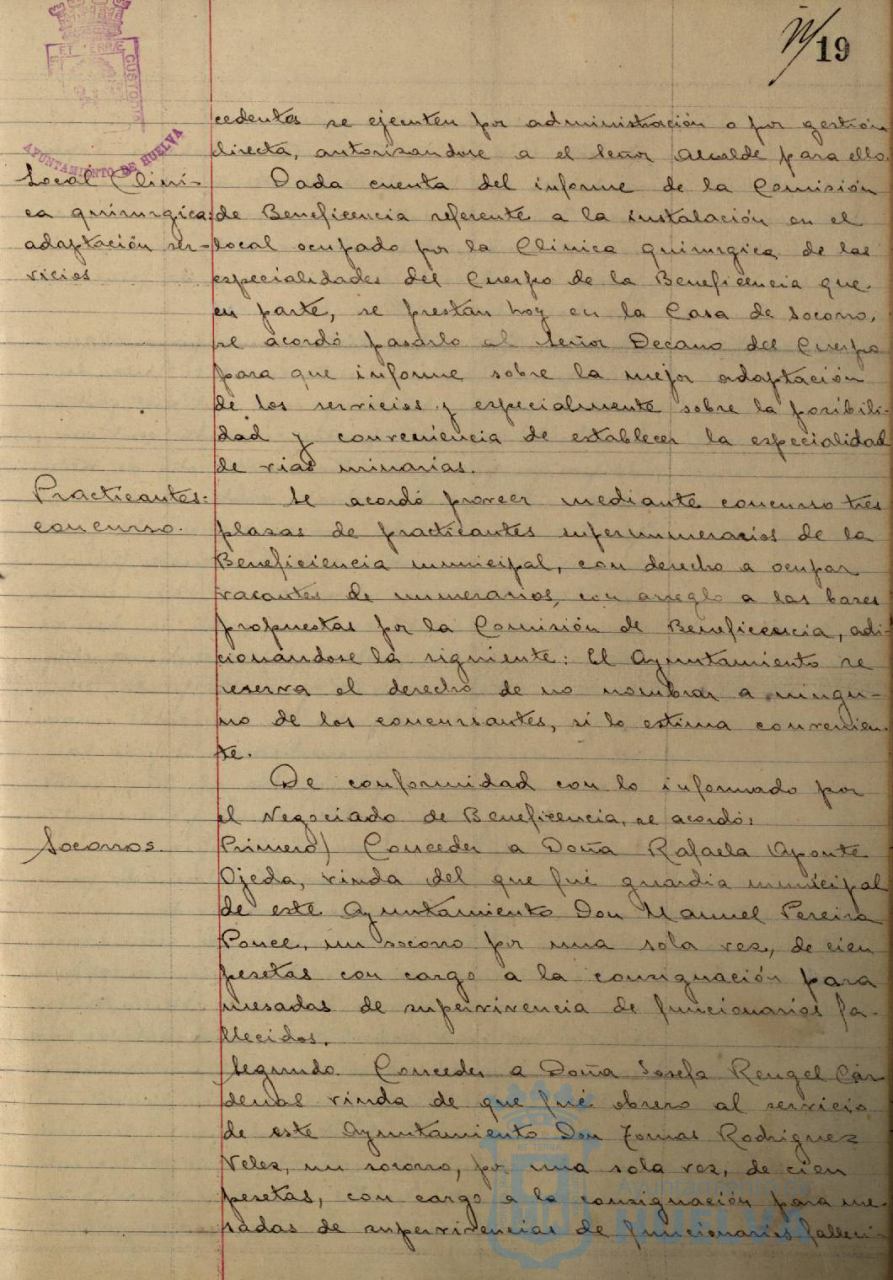 19
AYUNTAMIENTO DE HUELVA
cedentes se ejecuten por administración o por gestión
directa, autorizandose a el Señor Alcalde para ello.
Local Clíni-
ca quirurgica:
adaptación ser-
vicios
Dada cuenta del informe de la Comisión
de Beneficencia referente a la instalación en el
local ocupado por la Clinica quirurgica de las
especialidades del Cuerpo de la Beneficencia que
en parte, se prestan hoy en la Casa de Socorro,
se acordó pasarlo al Señor Decano del Cuerpo
para que informe sobre la mejor adaptación
de los servicios y especialmente sobre la posibili-
dad y conveniencia de establecer la especialidad
de vias urinarias.
Practicantes:
concurso.
Se acordó proveer mediante concurso tres
plazas de practicantes supernumerarios de la
Beneficiencia municipal, con derecho a ocupar
vacantes de numerarios, con arreglo a las bases
propuestas por la Comisión de Beneficencia, adi-
cionándose la siguiente: El Ayuntamiento se
reserva el derecho de no nombrar a ningu-
no de los concursantes, si lo estima convenien-
te.
De conformidad con lo informado por
el Negociado de Beneficencia, se acordó:
Socorros.
Primero) Conceder a Doña Rafaela Aponte
Ojeda, viuda del que fué guardia municipal
de este Ayuntamiento Don Manuel Pereira
Ponce, un socorro por una sola vez, de cien
pesetas con cargo a la consignación para
mesadas de supervivencia de funcionarios fa-
llecidos.
Segundo. Conceder a Doña Josefa Rengel Cár
denas viuda de que fué obrero al servicio
de este Ayuntamiento Don Tomas Rodriguez
Velez, un socorro, por una sola vez, de cien
pesetas, con cargo a la consignación para me-
sadas de supervivencias de funcionarios falleci-
Ayuntamiento de
HUELVA